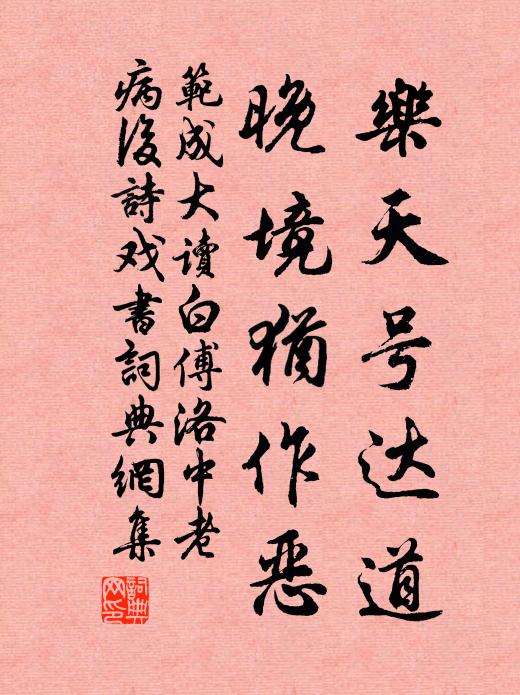 樂天号达道
晚境猶作恶
範成大讀白傅洛中老
病後詩戏書詞典網集
詞典網印